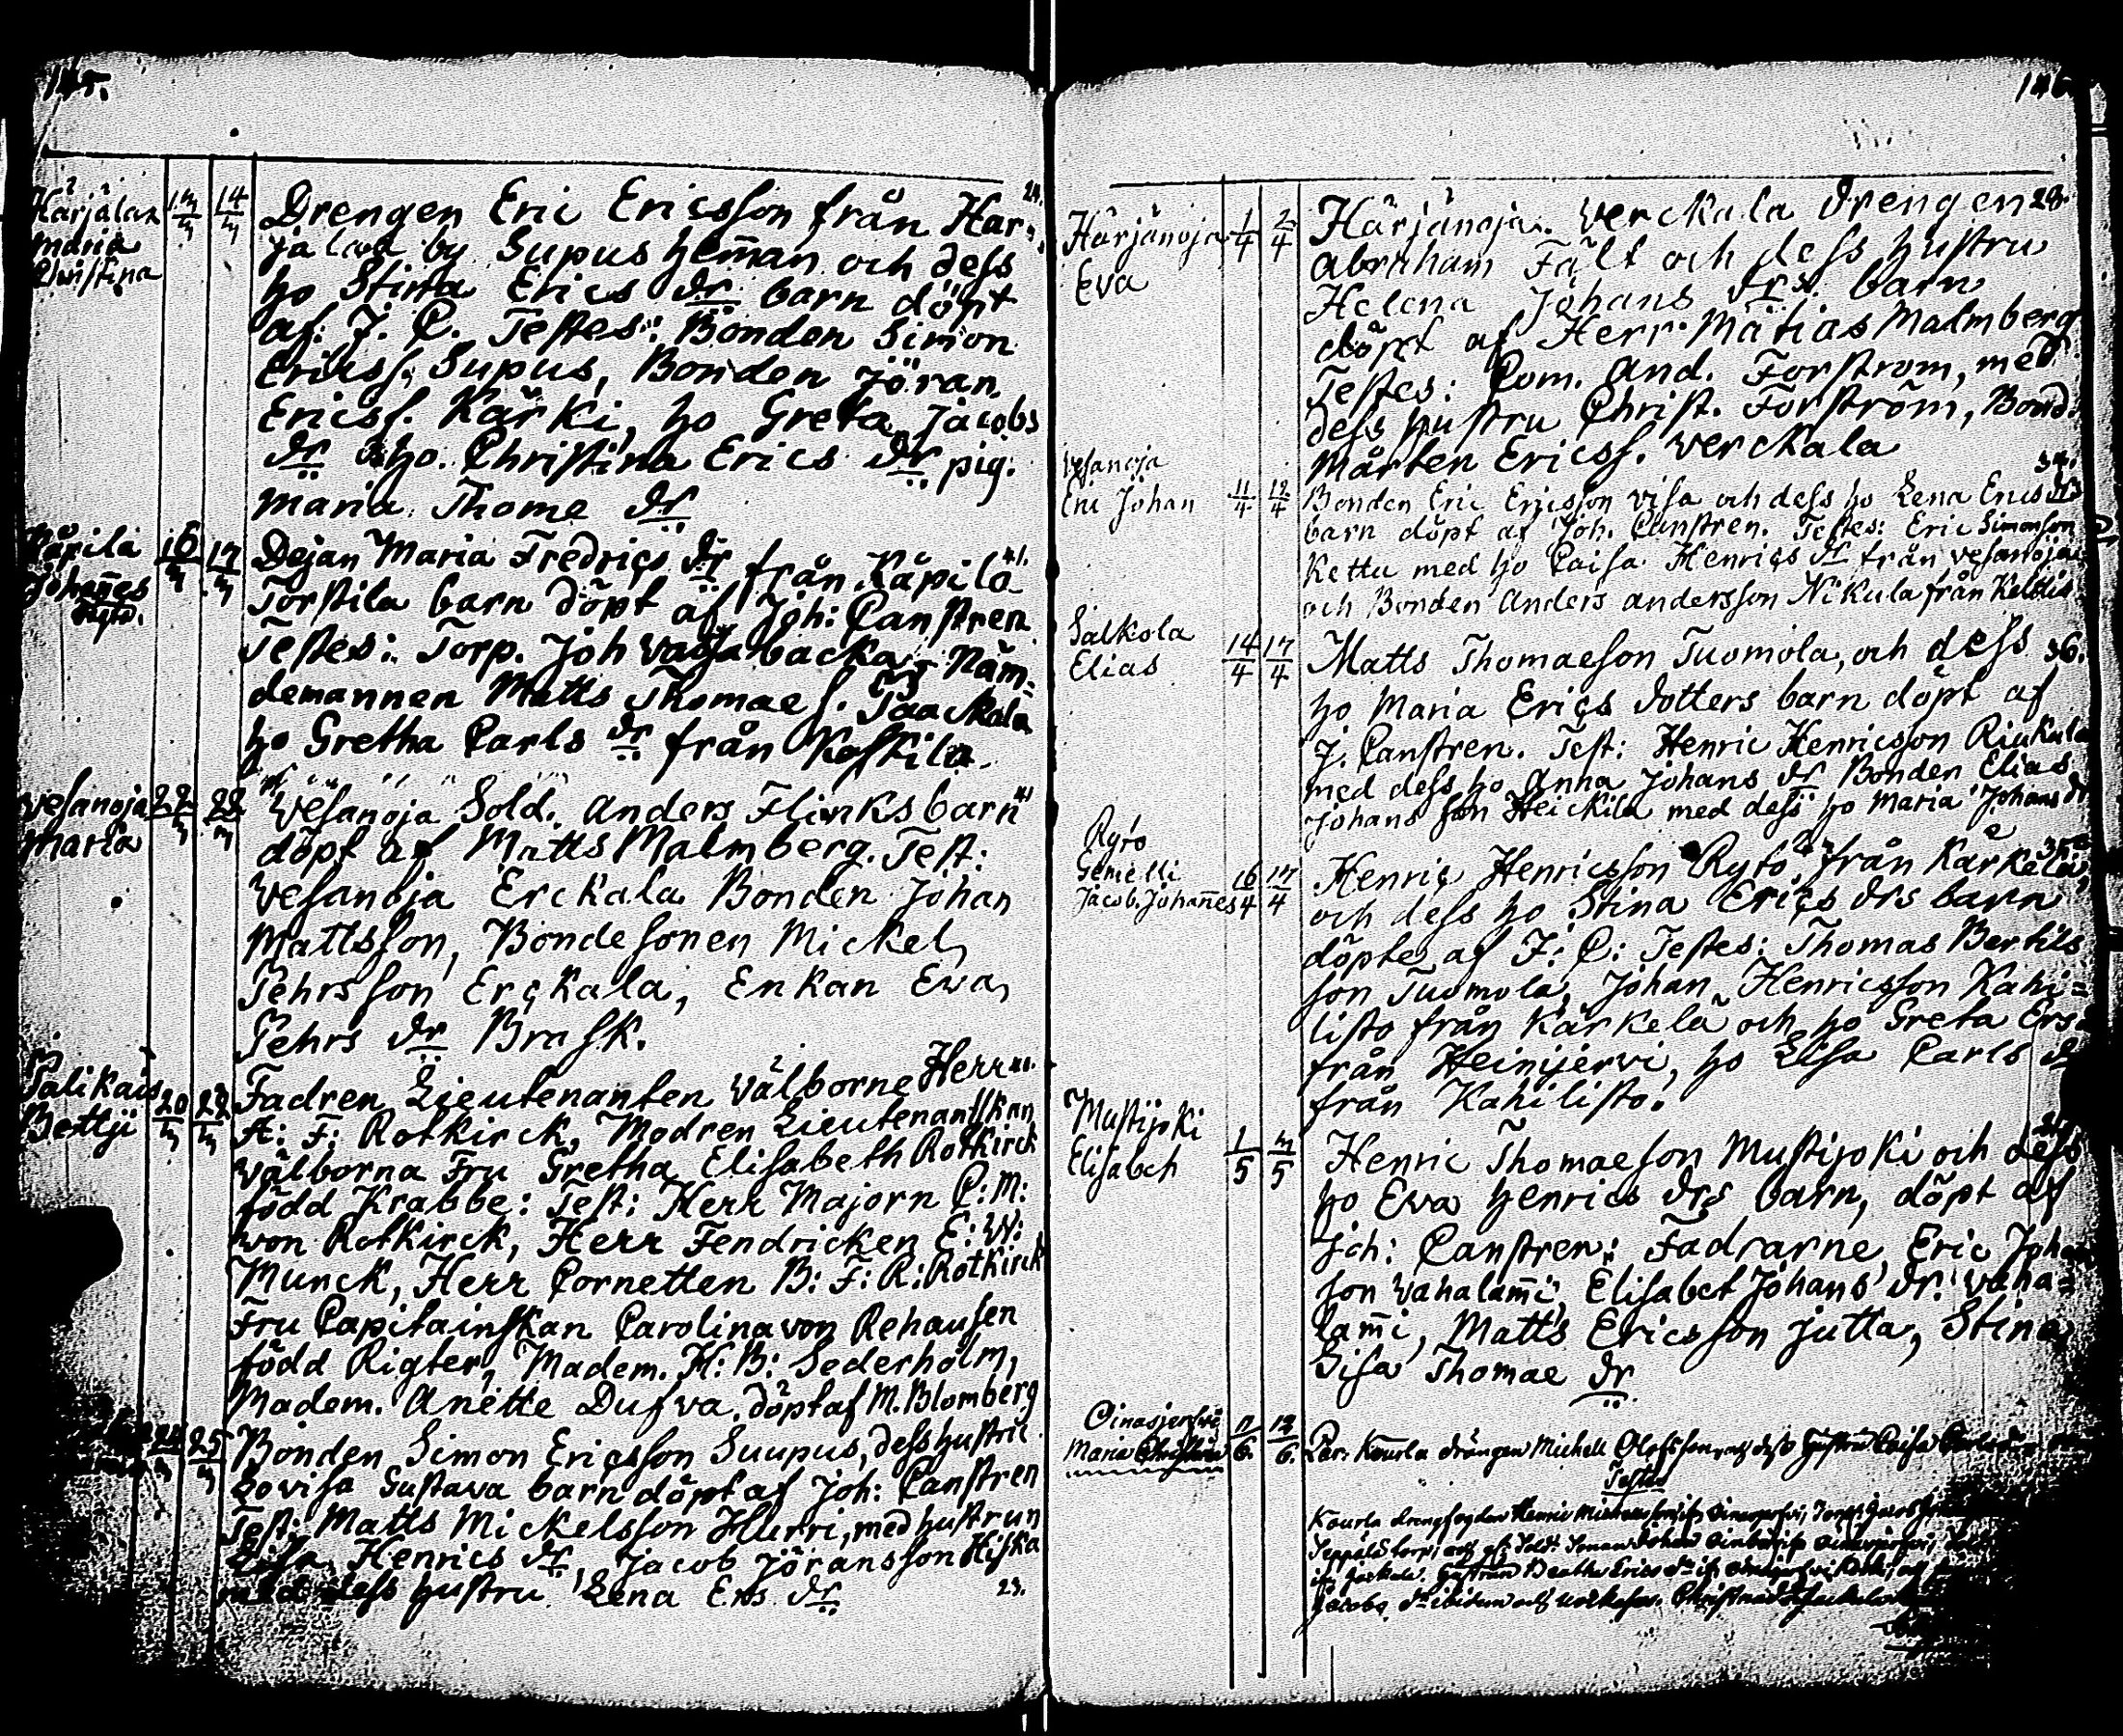 145.
Härjälax
Maria
Christina
13/3 14/3
Drengen Eric Ericsson från Har-
jalax by Supus heman och dess
ho Stina Erics dr barn döpt
af: J. C. Testes: Bonden Simon
Ericss. Supus, Bonden Jöran
Ericss. Kärki, ho Greta Jacobs
dr ho. Christina Erics dr pig.
Maria Thome dr
24.
Käpilä
Johannes
16/3 17/3
Dejan Maria Fredrics dr från Käpilä
Torstila barn döpt af Joh: Canstren
Testes: Torp. Joh backa, Näm=
demannen Matts Thomae s. Paackala
ho Gretha Carls dr från Kostila
41.
Vesanoja
Maria
22/3 28/3
Vesanoja Sold. Anders Flinks barn
döpt af Matts Malmberg. Test:
Vesanoja Erckala Bonden Johan
Mattsson, Bondesonen Mickel
Pehrsson Erckala, Enkan Ewa
Pehrs dr Brask.
Palikais
Bettji
20/3 22/3
Fadren Lieutenanten Wälborne Herr
A: F: Rotkirck, Modren Lieutenantskan
Wälborna Fru Gretha Elisabeth Rotkirck
född Krabbe: Test: Herr Majorn C: M:
von Rotkirck, Herr Fendricken E: W:
Munck, Herr Cornetten B: F: R: Rotkirck
Fru Capitainskan Carolina von Rehausen
född Rigter, Madem. H: B: Sederholm,
Madem. Anette Dufva. döpt af M. Blomberg
24/3 25/3
Bonden Simon Ericsson Suupus, dess hustru
Lovisa Gustava barn döpt af Joh: Canstren
Test: Matts Mickelsson Hurri, med hustrun
Lisa Henrics dr, Jacob Jöransson Hiska
med dess hustru Lena Ers dr
23.
146
Härjänoja
Eva
1/4 2/4
Härjänoja. Verckala drengen 28.
Abraham Fält och dess hustru
Helena Johans drs barn
döpt af Herr Matias Malmberg
Testes: Com. And. Forstrom, med
dess hustru Christ. Forström, Bond.
Mårten Ericss. Verckala
Vesanoja
Eric Johan
11/4 12/4
34.
Bonden Eric Ericsson Visa och dess ho Lena Erics drs
barn döpt af Joh. Canstren. Testes: Eric Simonson
Kettu med ho Caisa Henrics dr från Vesanoja
och Bonden Anders Andersson Nikula från Keldis
Salkola
Elias
14/4 17/4
Matts Thomaeson Tuomola, och dess 36.
ho Maria Erics dotters barn döpt af
J. Canstren. Test: Henric Henricsson Riukula
med dess ho Anna Johans dr Bonden Elias
Johansson Heickilä med dess ho Maria Johans dr
Rytö
Gemelli
Jacob. Johannes
16/4 17/4
Henric Henricsson Rytö från Kärkelä
och dess ho Stina Erics drs barn
döpte af J: C: Testes: Thomas Bertils
son Tuomola, Johan Henricsson Kahi=
listo från Kärkelä och ho Greta Ers
från Heinijervi, ho Lisa Carls dr
från Kahilisto.
Mustijoki
Elisabeh
1/5 3/5
Henric Thomaeson Mustijoki och dess
ho Ewa Henrics drs barn, döpt af
Joh: Canstren: Fadrarne Eric Johan
son Wahalammi, Elisabet Johans dr. Waha=
lammi, Matts Ericsson Jutta, Stina
Lisa Thomae dr
Oinasjerfvi
Maria Christina
11/6. 12/6.
Par: Kourla drängen Michell Olofsson, och dess Hustru Caisa
Testes
Kourla